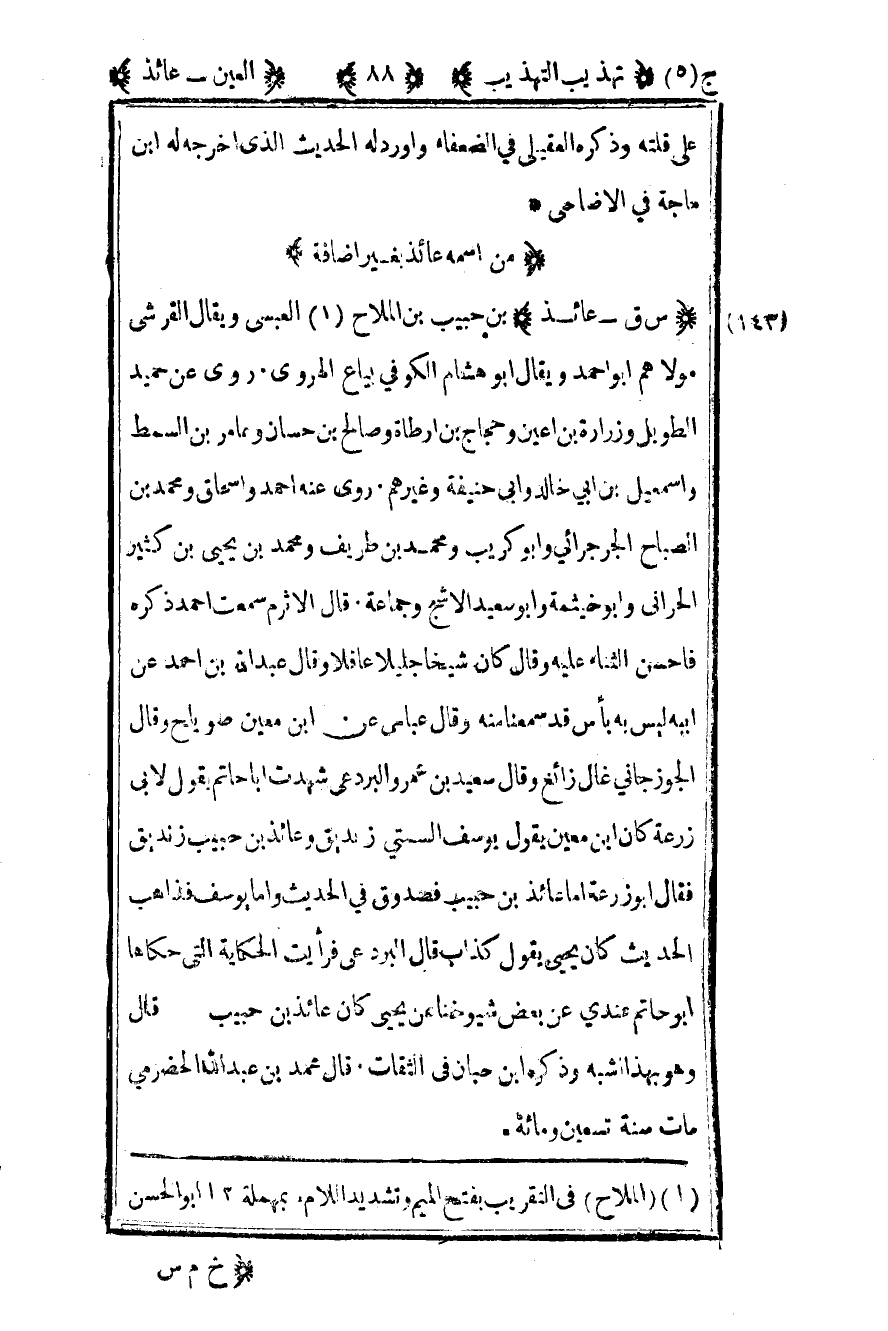 ج(٥) ﴿ تهذيب التهذيب ﴾ ﴿ ٨٨ ﴾ ﴿ العين ــ عائذ ﴾
على قلته وذكره العقيلي في الضعفاء واورد له الحديث الذى اخرجه له ابن
ماجة في الاضاحى *
﴿ من اسمه عائذ بغير اضافة ﴾
(١٤٣) ﴿ س ق ــ عائذ ﴾ بن حبيب بن الملاح (١) العبسى ويقال القرشى
مولاهم ابو احمد ويقال ابو هشام الكوفي بياع الهروى٠ روى عن حميد
الطويل وزرارة بن اعين وحجاج بن ارطاة وصالح بن حسان وعامر بن السمط
واسمعيل بن ابي خالد وابي حنيفة وغيرهم٠ روى عنه احمد واسحاق ومحمد بن
الصباح الجرجرائي وابو كريب ومحمد بن طريف ومحمد بن يحيى بن كثير
الحرانى وابو خيثمة وابو سعيد الاشج وجماعة٠ قال الاثرم سمعت احمد ذكره
فاحسن الثناء عليه وقال كان شيخا جليلا عاقلا وقال عبدالله بن احمد عن
ابيه ليس به بأس قد سمعنا منه وقال عباس عن ابن معين صويلح وقال
الجوزجاني غال زائغ وقال سعيد بن عمرو البردعى شهدت ابا حاتم يقول لابى
زرعة كان ابن معين يقول يوسف السمتي زنديق وعائذ بن حبيب زنديق
فقال ابوزرعة اما عائذ بن حبيب فصدوق في الحديث واما يوسف فذاهب
الحديث كان يحيى يقول كذاب قال البردعى فرأيت الحكاية التى حكاها
ابو حاتم عندي عن بعض شيوخنا عن يحيى كان عائذ بن حبيب قال
وهو بهذا اشبه وذكره ابن حبان فى الثقات٠ قال محمد بن عبدالله الحضرمي
مات سنة تسعين ومائة٠
(١) (الملاح) فى التقريب بفتح الميم وتشديد اللام، بمهملة ١٢ ابو الحسن
﴿ خ م س